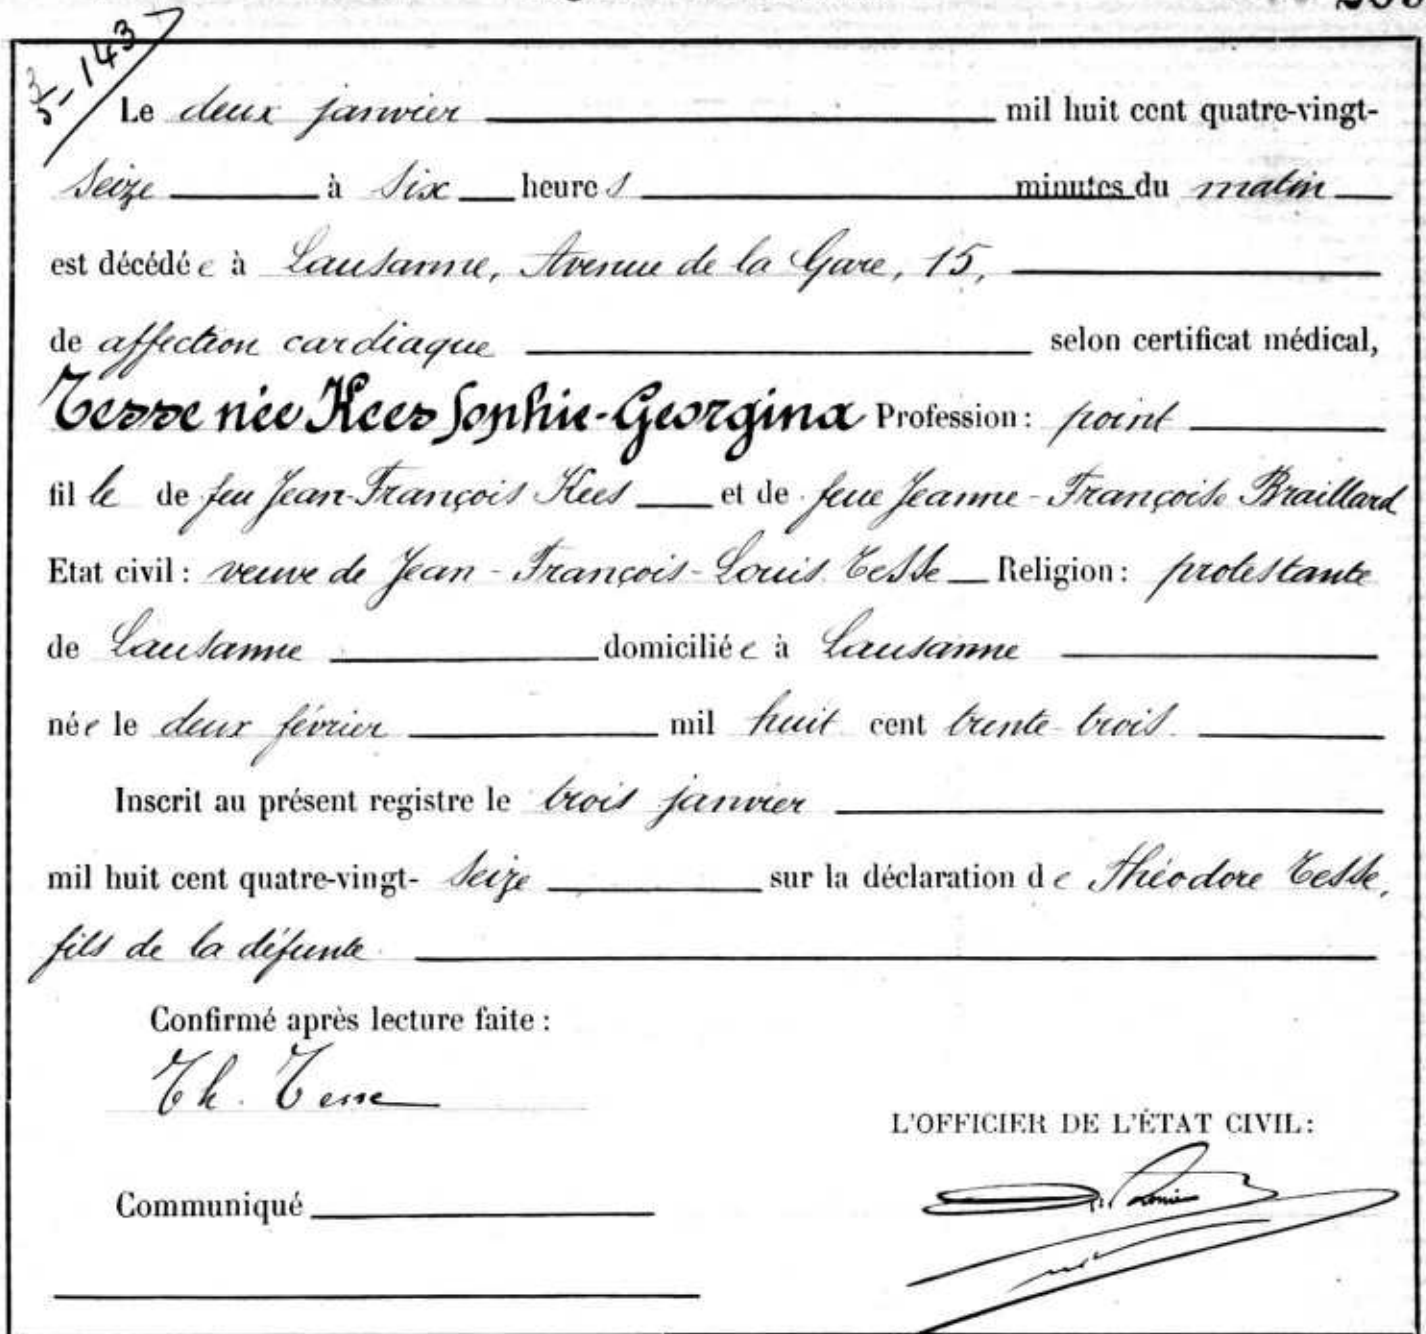 5-143
Le deux janvier mil huit cent quatre-vingt-
seize à six heures minutes du matin
est décédée à Lausanne, Avenue de la Gare, 15,
de affection cardiaque selon certificat médical,
Tesse née Kees Sophie-Georgina Profession: point
fille de feu Jean-François Kees et de feue Jeanne-Françoise Braillard
Etat civil: veuve de Jean-François-Louis Tesse Religion: protestante
de Lausanne domiciliée à Lausanne
née le deux février mil huit cent trente-trois.
Inscrit au présent registre le trois janvier
mil huit cent quatre-vingt-seize sur la déclaration de Théodore Tesse,
fils de la défunte
Confirmé après lecture faite:
Th. Tesse
L'OFFICIER DE L'ÉTAT CIVIL:
Communiqué